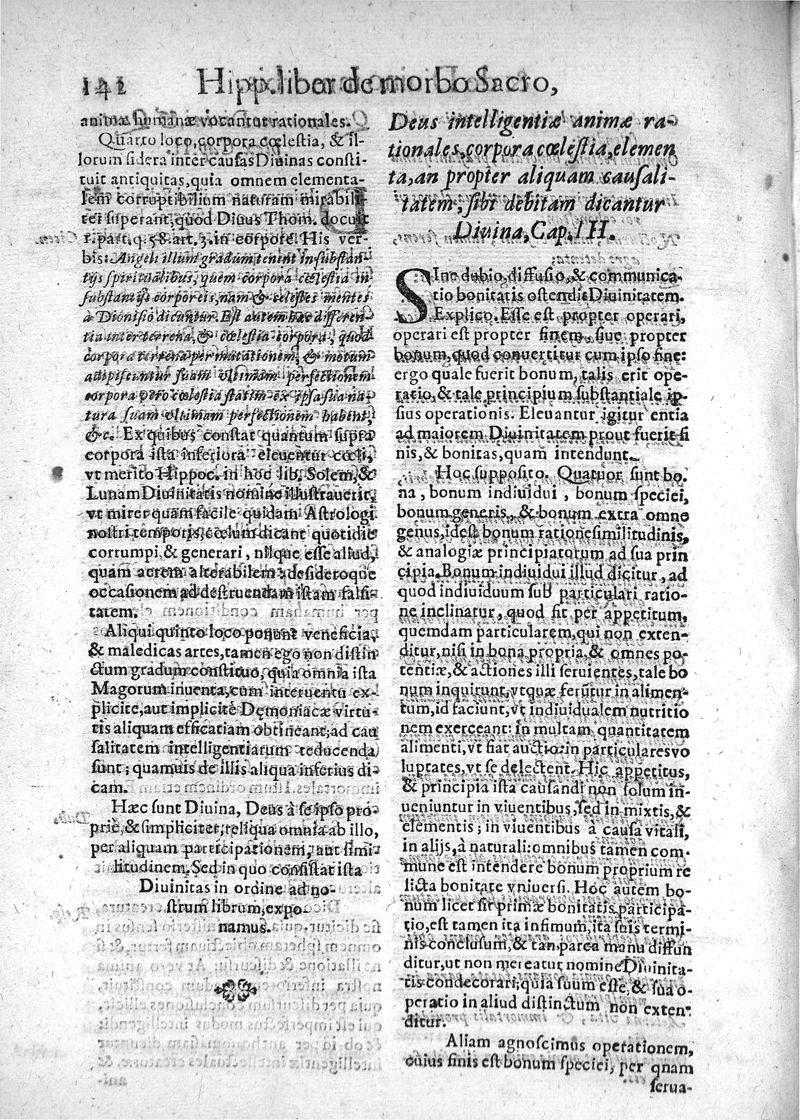 142 Hipp. liber de morbo Sacro,
animæ humanæ vocantur rationales.
Quarto loco, corpora cœlestia, & il-
lorum sidera inter causas Diuinas consti-
tuit antiquitas, quia omnem elementa-
lem corruptibilium naturam mirabili-
tèr superant, quod Diuus Thom. docuit
1. part. q. 58. art. 3. in corpore. His ver-
bis: Angeli illum gradum tenent in substan-
tijs spiritualibus, quem corpora cœlestia in
substantijs corporeis, nam & cœlestes mentes
à Dionisio dicuntur. Est autem hæc differen-
tia inter terrena, & cœlestia corpora, quod
corpora terrena per mutationem, & motum
adipiscuntur suam vltimam perfectionem
corpora verò cœlestia statim ex ipsa sua na-
tura suam vltimam perfectionem habent,
&c. Ex quibus constat quantum supra
corpora ista inferiora eleuentur cœli,
vt merito Hippoc. in hoc lib. Solem, &
Lunam Diuinitatis nomine illustrauerit,
vt mirer quam facile quidam Astrologi
nostri temporis, cœlum dicant quotidie
corrumpi, & generari, nilque esse aliud,
quam aerem alterabilem: desideroque
occasionem ad destruendam istam falsi-
tatem.
Aliqui quinto loco ponunt veneficia,
& maledicas artes, tamen ego non distin
ctum gradum constituo, quia omnia ista
Magorum inuenta, cum interuentu ex-
plicite, aut implicitè Dęmoniacæ virtu-
tis aliquam efficatiam obtineant, ad cau
salitatem intelligentiarum reducenda
sunt; quamuis de illis aliqua inferius di-
cam.
Hæc sunt Diuina, Deus à se ipso pro-
priè, & simpliciter, reliqua omnia ab illo,
per aliquam participationem, aut simi-
litudinem. Sed in quo consistat ista
Diuinitas in ordine ad no-
strum librum, expo-
namus.
Deus intelligentiæ animæ ra-
tionales, corpora cœlestia, elemen
ta, an propter aliquam causali-
tatem, sibi debitam dicantur
Diuina, Cap. III.
SIne dubio, diffusio, & communica-
tio bonitatis ostendit Diuinitatem.
Explico. Esse est propter operari,
operari est propter finem, siue propter
bonum, quod conuertitur cum ipso fine:
ergo quale fuerit bonum, talis erit ope-
ratio, & tale principium substantiale ip-
sius operationis. Eleuantur igitur entia
ad maiorem Diuinitatem prout fuerit fi
nis, & bonitas, quam intendunt.
Hoc supposito. Quatuor sunt bo-
na, bonum indiuidui, bonum speciei,
bonum generis, & bonum extra omne
genus, idest bonum ratione similitudinis,
& analogiæ principiatorum ad sua prin
cipia. Bonum indiuidui illud dicitur, ad
quod indiuiduum sub particulari ratio-
ne inclinatur, quod fit per appetitum,
quemdam particularem, qui non exten-
ditur, nisi in bona propria, & omnes po-
tentiæ, & actiones illi seruientes, tale bo
num inquirunt, vtquæ ferūtur in alimen-
tum, id faciunt, vt indiuidualem nutritio
nem exerceant: in multam quantitatem
alimenti, vt fiat auctio: in particulares vo
luptates, vt se delectent. Hic appetitus,
& principia ista causandi non solum in-
ueniuntur in viuentibus, sed in mixtis, &
elementis; in viuentibus à causa vitali,
in alijs, à naturali: omnibus tamen com-
mune est intendere bonum proprium re
licta bonitate vniuersi. Hoc autem bo-
num licet sit primæ bonitatis participa-
tio, est tamen ita infimum, ita suis termi-
nis conclusum, & tan parea manu diffun
ditur, ut non mereatur nomine Diuinita-
tis condecorari, quia suum esse, & sua o-
peratio in aliud distinctum non exten-
ditur.
Aliam agnoscimus operationem,
cuius finis est bonum speciei, per quam
serua-